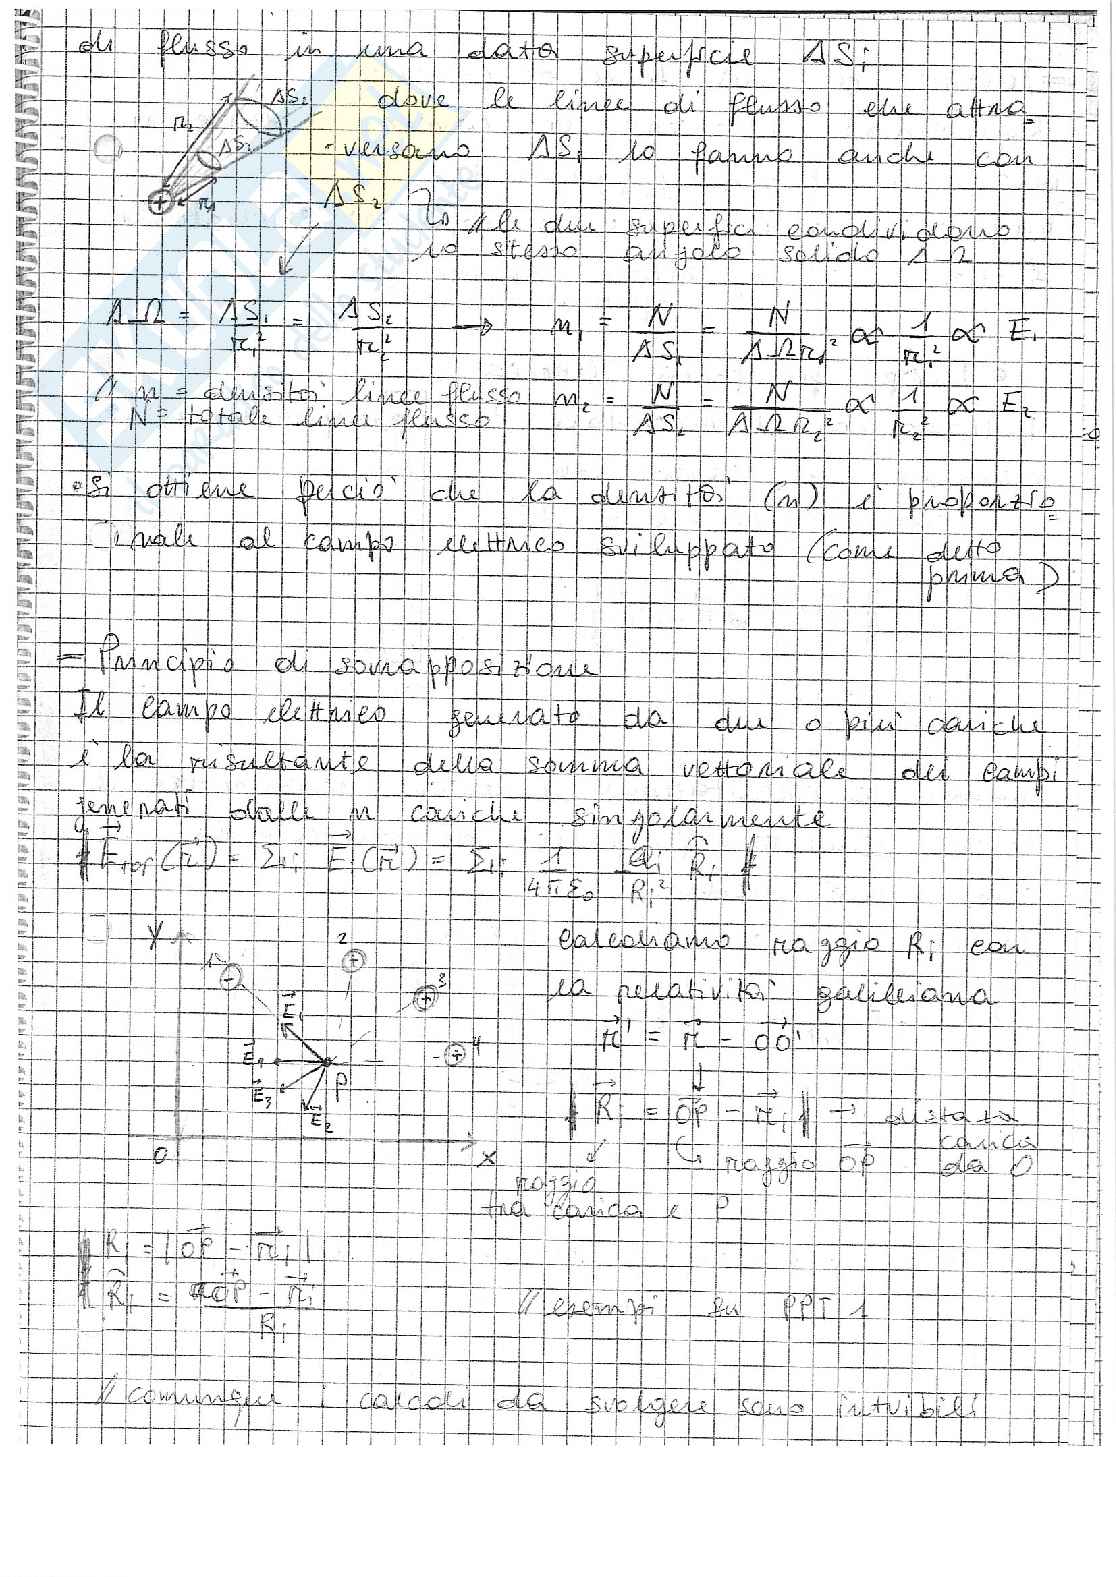 di flusso in una data superficie ΔSi
ΔS2 dove le linee di flusso che attra=
r2
ΔS1 -versano ΔS1 lo fanno anche con
+ r1 ΔS2
// le due superfici condividono
lo stesso angolo solido ΔΩ
ΔΩ = ΔS1/r1² = ΔS2/r2² → n1 = N/ΔS1 = N/ΔΩr1² ∝ 1/r1² ∝ E1
// n = densità linee flusso n2 = N/ΔS2 = N/ΔΩr2² ∝ 1/r2² ∝ E2
N = totale linee flusso
• Si ottiene perciò che la densità (n) è proporzio=
nale al campo elettrico sviluppato (come detto
prima)
- Principio di sovrapposizione
Il campo elettrico generato da due o più cariche
è la risultante della somma vettoriale dei campi
generati dalle n cariche singolarmente
E⃗TOT(r⃗) = Σi E⃗i(r⃗) = Σi 1/4πε0 qi/Ri² R̂i
y 1 - 2 + 3 + 4 +
E⃗1
E⃗4 P
E⃗3
E⃗2
O x
Calcoliamo raggio Ri con
la relatività galileiana
r⃗' = r⃗ - OO⃗'
↓
R⃗i = OP⃗ - r⃗i → distanza
carica
da O
raggio OP⃗
raggio
tra carica e P
Ri = |OP⃗ - r⃗i|
R̂i = OP⃗ - r⃗i / Ri
// esempi su PPT 1
// comunque i calcoli da svolgere sono intuibili